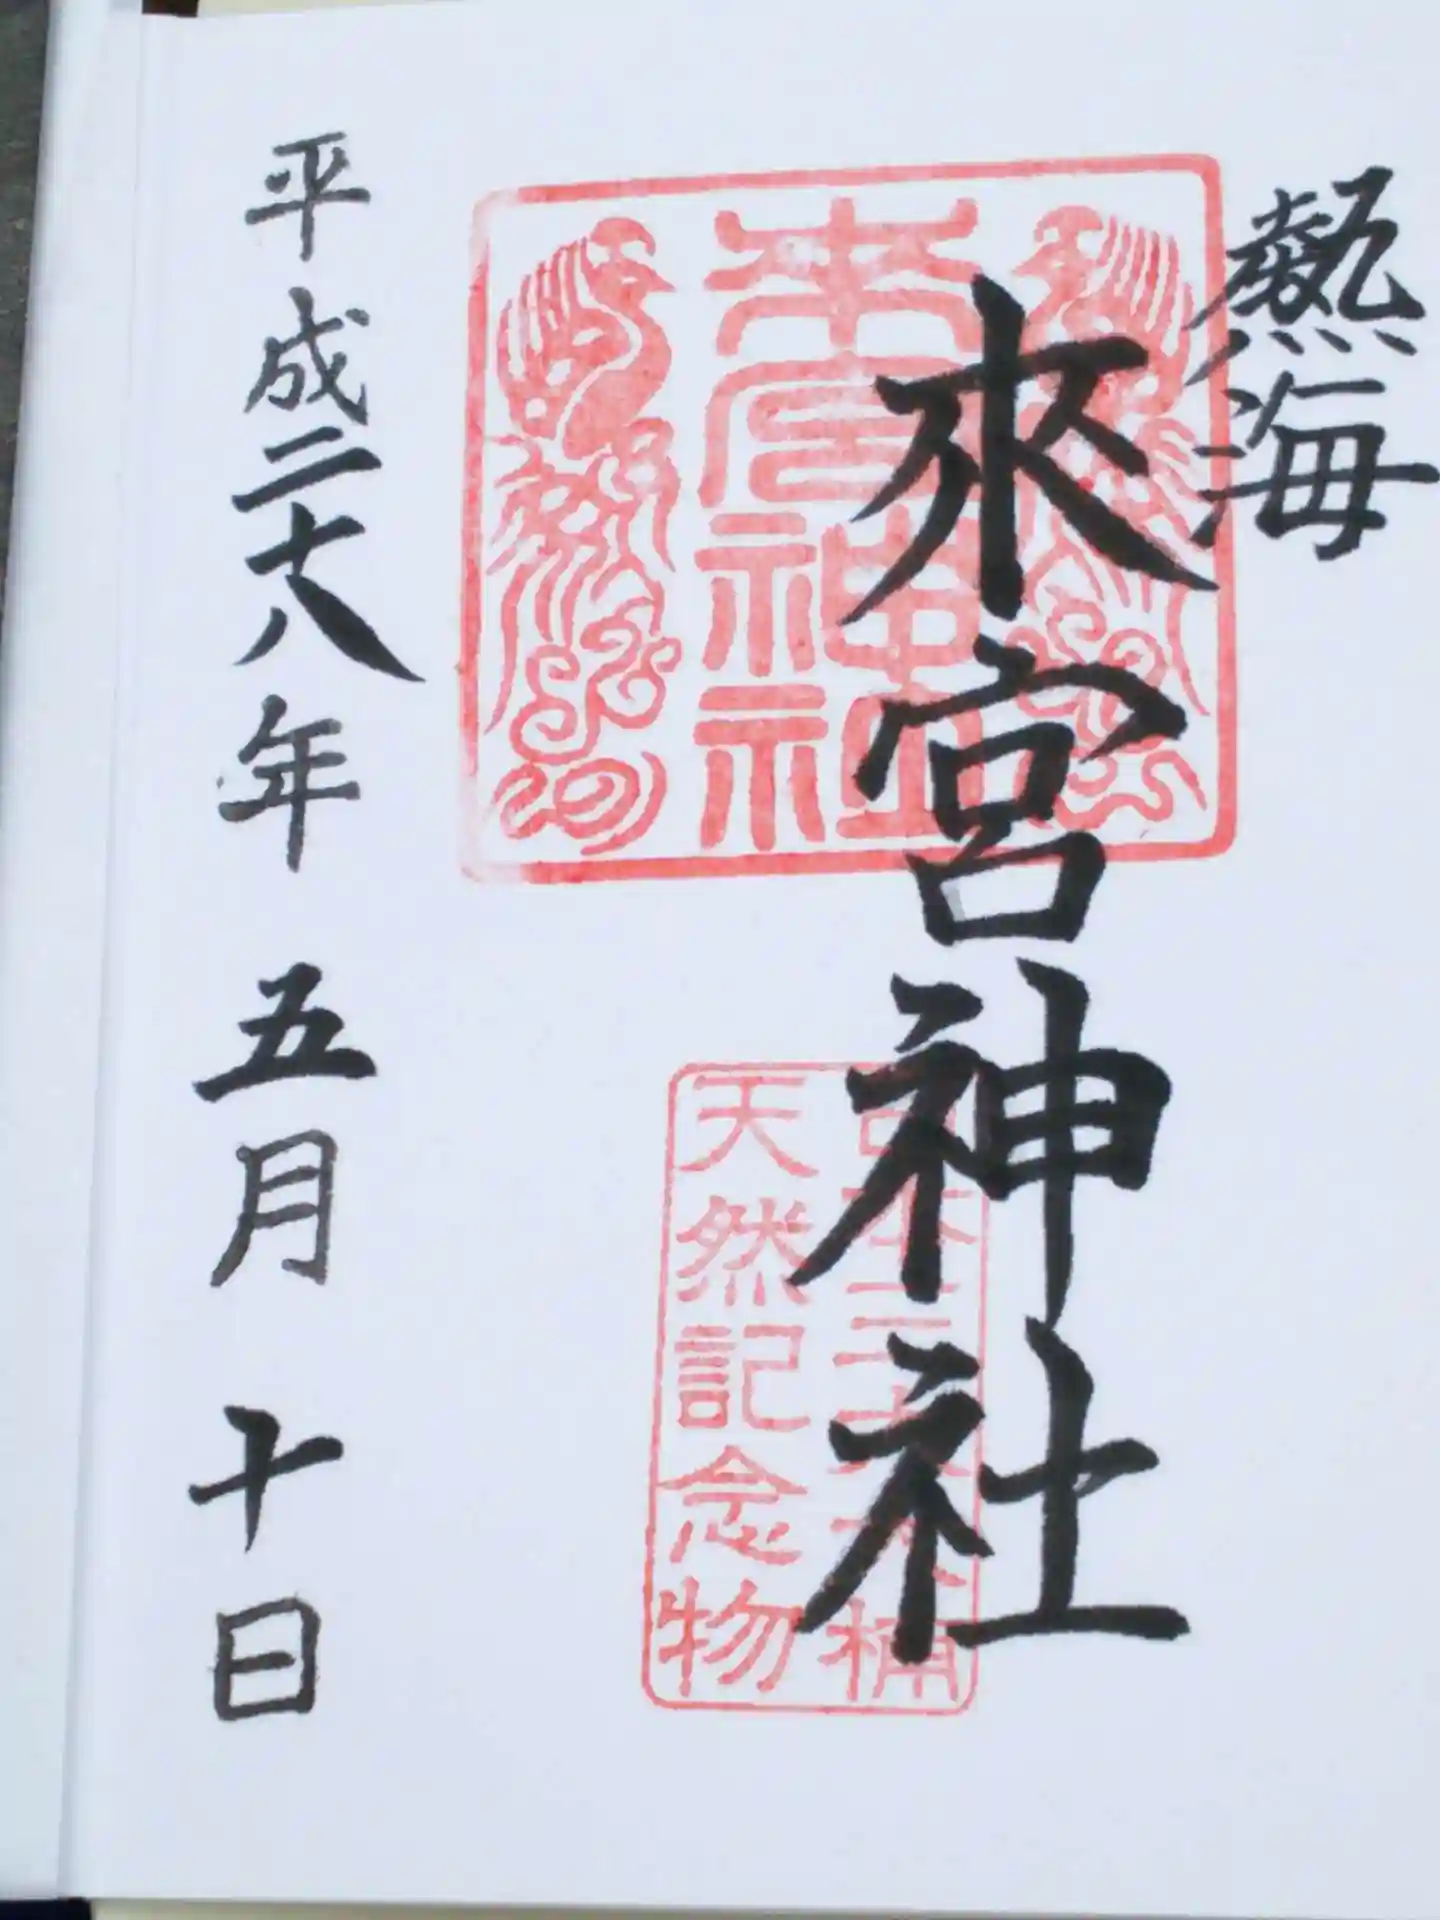 熱海
來宮神社
來宮神社
天然記念物
平成二十八年 五月 十日